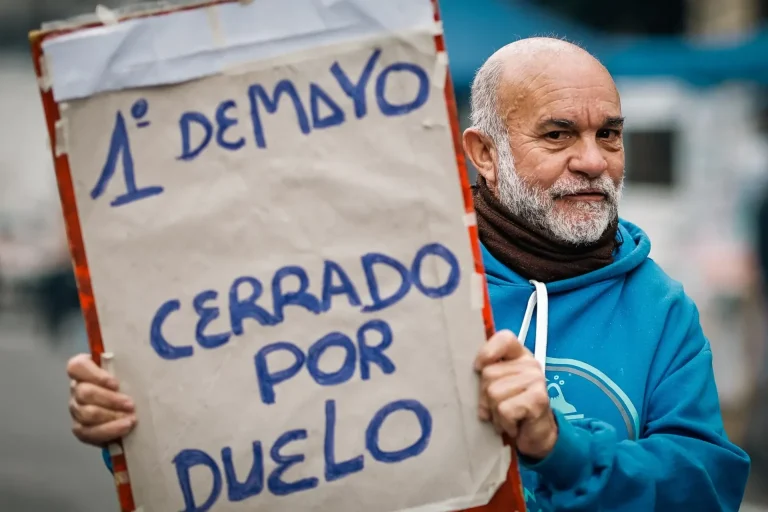 1º DE MAYO
CERRADO
POR
DUELO